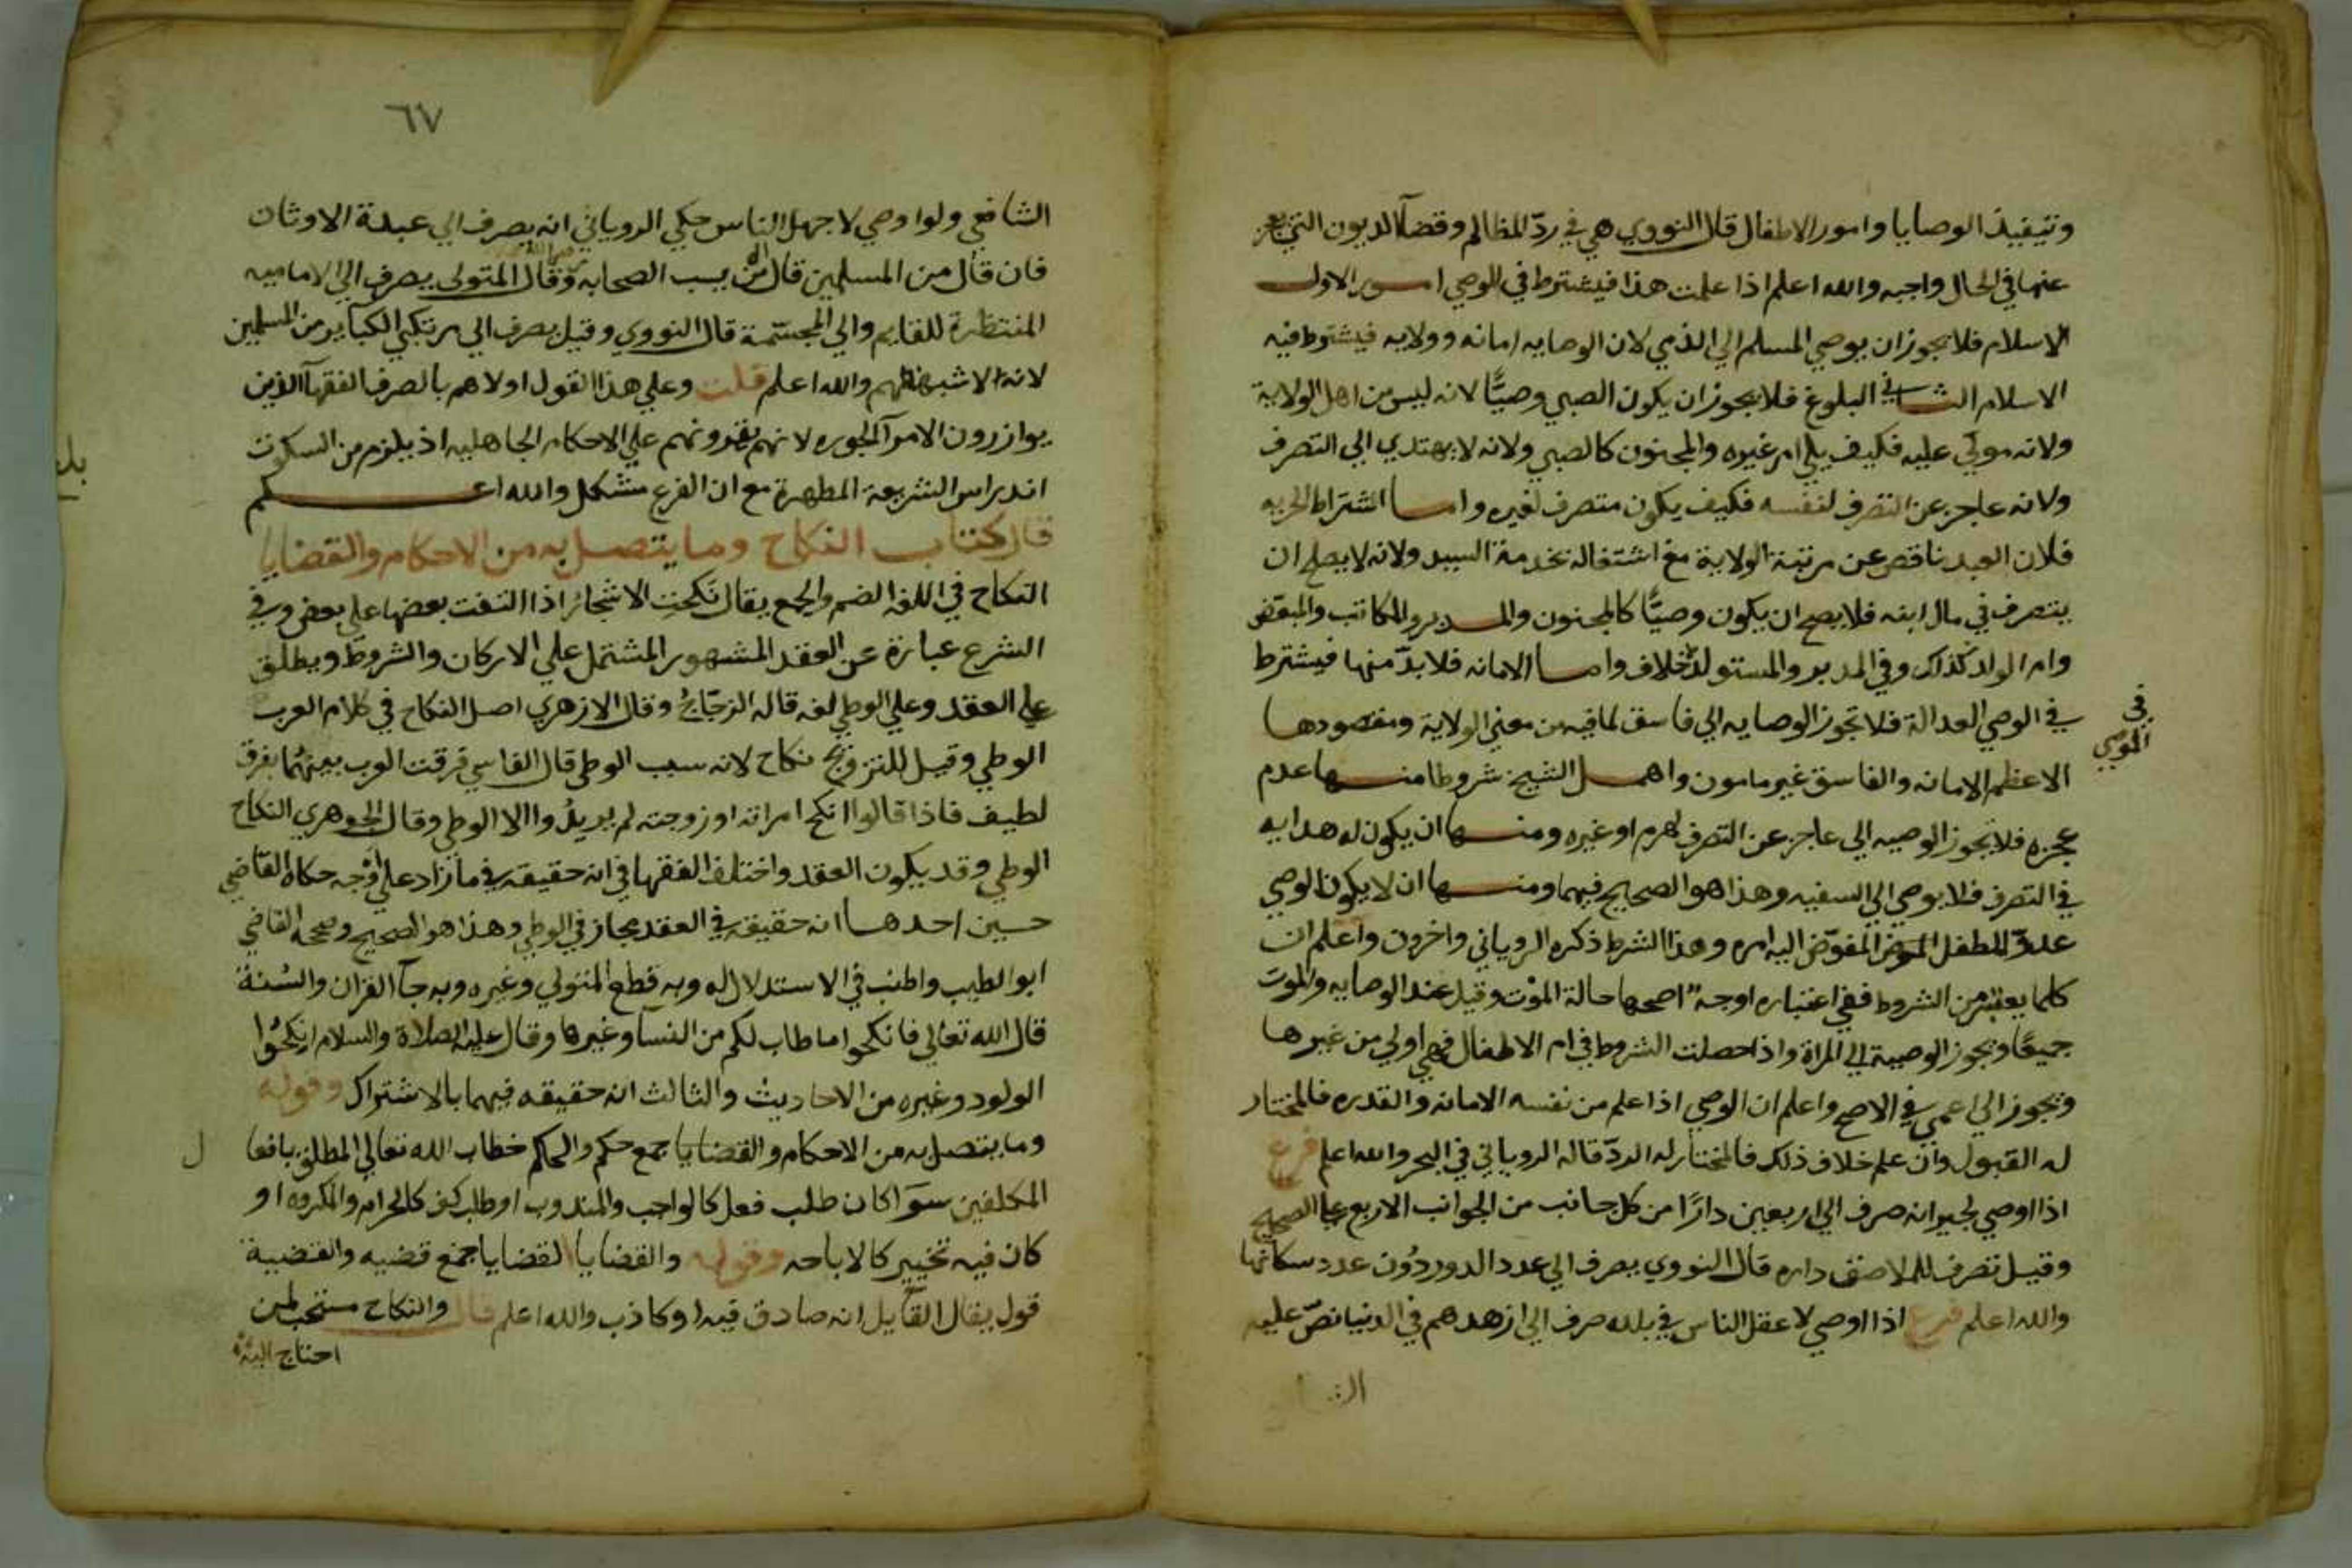 وتنفيذ الوصايا وامور الاطفال قال النووي هي في ردّ المظالم وقضآ الديون التي يعجز
عنها في الحال واجبه والله اعلم اذا علمت هذا فيشترط في الموصي امور الاول
الاسلام فلا يجوز ان يوصي المسلم الي الذمي لان الوصايه امانه وولايه فيشترط فيه
الاسلام الثاني البلوغ فلا يجوز ان يكون الصبي وصيًّا لانه ليس من اهل الولاية
ولانه مولّي عليه فكيف يلي امر غيره والمجنون كالصبي ولانه لا يهتدي الي التصرف
ولانه عاجز عن التصرف لنفسه فكيف يكون متصرف لغيره واما اشتراط الحريه
فلان العبد ناقص عن مرتبة الولاية مع اشتغاله بخدمة السيد ولانه لا يصلح ان
يتصرف في مال ابنه فلا يصح ان يكون وصيًّا كالمجنون والمدبر والمكاتب والمبعّض
وام الولد كذلك وفي المدبر والمستولدة خلاف واما الامانه فلا بدّ منها فيشترط
في الوصي العدالة فلا تجوز الوصايه الي فاسق لما فيه من معني الولاية ومقصودها
في
الموصي
الاعظم الامانه والفاسق غير مامون واهمل الشيخ شروطا منها عدم
عجزه فلا يجوز الوصيه الي عاجز عن التصرف لهرم او غيره ومنها ان يكون له هدايه
في التصرف فلا يوصي الي السفيه وهذا هو الصحيح فيهما ومنها ان لا يكون الوصي
عدوّ للطفل المفوّض اليه امره وهذا الشرط ذكره الروياني واخرون واعلم ان
كلما يعتبر من الشروط ففي اعتباره اوجه اصحها حالة الموت وقيل عند الوصايه والموت
جميعًا ويجوز الوصيبة الي المراة واذا حصلت الشروط في ام الاطفال فهي اولي من غيرها
ويجوز الي اعمي في الاصح واعلم ان الوصي اذا علم من نفسه الامانه والقدره فالمختار
له القبول وان علم خلاف ذلك فالمختار له الردّ قاله الروياني في البحر والله اعلم فرع
اذا اوصي لجيرانه صرف الي اربعين دارًا من كل جانب من الجوانب الاربع علي الصحيح
وقيل تصرف للملاصق داره قال النووي يصرف الي عدد الدور دون عدد سكانها
والله اعلم فرع اذا اوصي لاعقل الناس في بلده صرف الي ازهدهم في الدنيا نصّ عليه
٦٧
الشافعي ولو اوصي لاجهل الناس حكي الروياني انه يصرف الي عبدة الاوثان
فان قال من المسلمين قال من يسب الصحابه وقال المتولي يصرف الي الاماميه
المنتظرة للقايم والي المجسّمة قال النووي وقيل يصرف الي مرتكبي الكباير من المسلمين
لانه الاشبه والله اعلم قلت وعلي هذا القول اولاهم بالصرف الفقهآ الذين
يوازرون الامرآ الجوره لانهم يقرونهم علي الاحكام الجاهليه اذ يلزم من السكوت
اندراس الشريعة المطهرة مع ان الفرع مشكل والله اعلم
قال كتاب النكاح وما يتصل به من الاحكام والقضايا
النكاح في اللغه الضم والجمع يقال نكحت الاشجار اذا التفت بعضها علي بعض وفي
الشرع عبارة عن العقد المشهور المشتمل علي الاركان والشروط ويطلق
علي العقد وعلي الوطي لغه قاله الزجّاج وقال الازهري اصل النكاح في كلام العرب
الوطي وقيل للتزويج نكاح لانه سبب الوطي قال الفاسي فرقت العرب بينهما بفرق
لطيف فاذا قالوا انكح امراته او زوجته لم يريدوا الا الوطي وقال الجوهري النكاح
الوطي وقد يكون العقد واختلف الفقها في انه حقيقه في ماذا علي اوجه حكاه القاضي
حسين احدها انه حقيقه في العقد مجاز في الوطي وهذا هو الصحيح وصححه القاضي
ابو الطيب واطنب في الاستدلال له وبه قطع المتولي وغيره وبه جآ القران والسُنة
قال الله تعالي فانكحوا ما طاب لكم من النسا وغيرها وقال عليه الصلاة والسلام انكحُوا
الولود وغيره من الاحاديث والثالث انه حقيقه فيهما بالاشتراك وقوله
وما يتصل به من الاحكام والقضايا جمع حكم والحكم خطاب الله تعالي المطلق بافعا
ل
المكلفين سوا كان طلب فعل كالواجب والمندوب او طلب كف كالحرام والمكروه او
كان فيه تخيير كالاباحه وقوله والقضايا القضايا جمع قضيه والقضيبة
قول يقال لقايل انه صادق فيه او كاذب والله اعلم قال والنكاح مستحب لمن
احتاج اليه